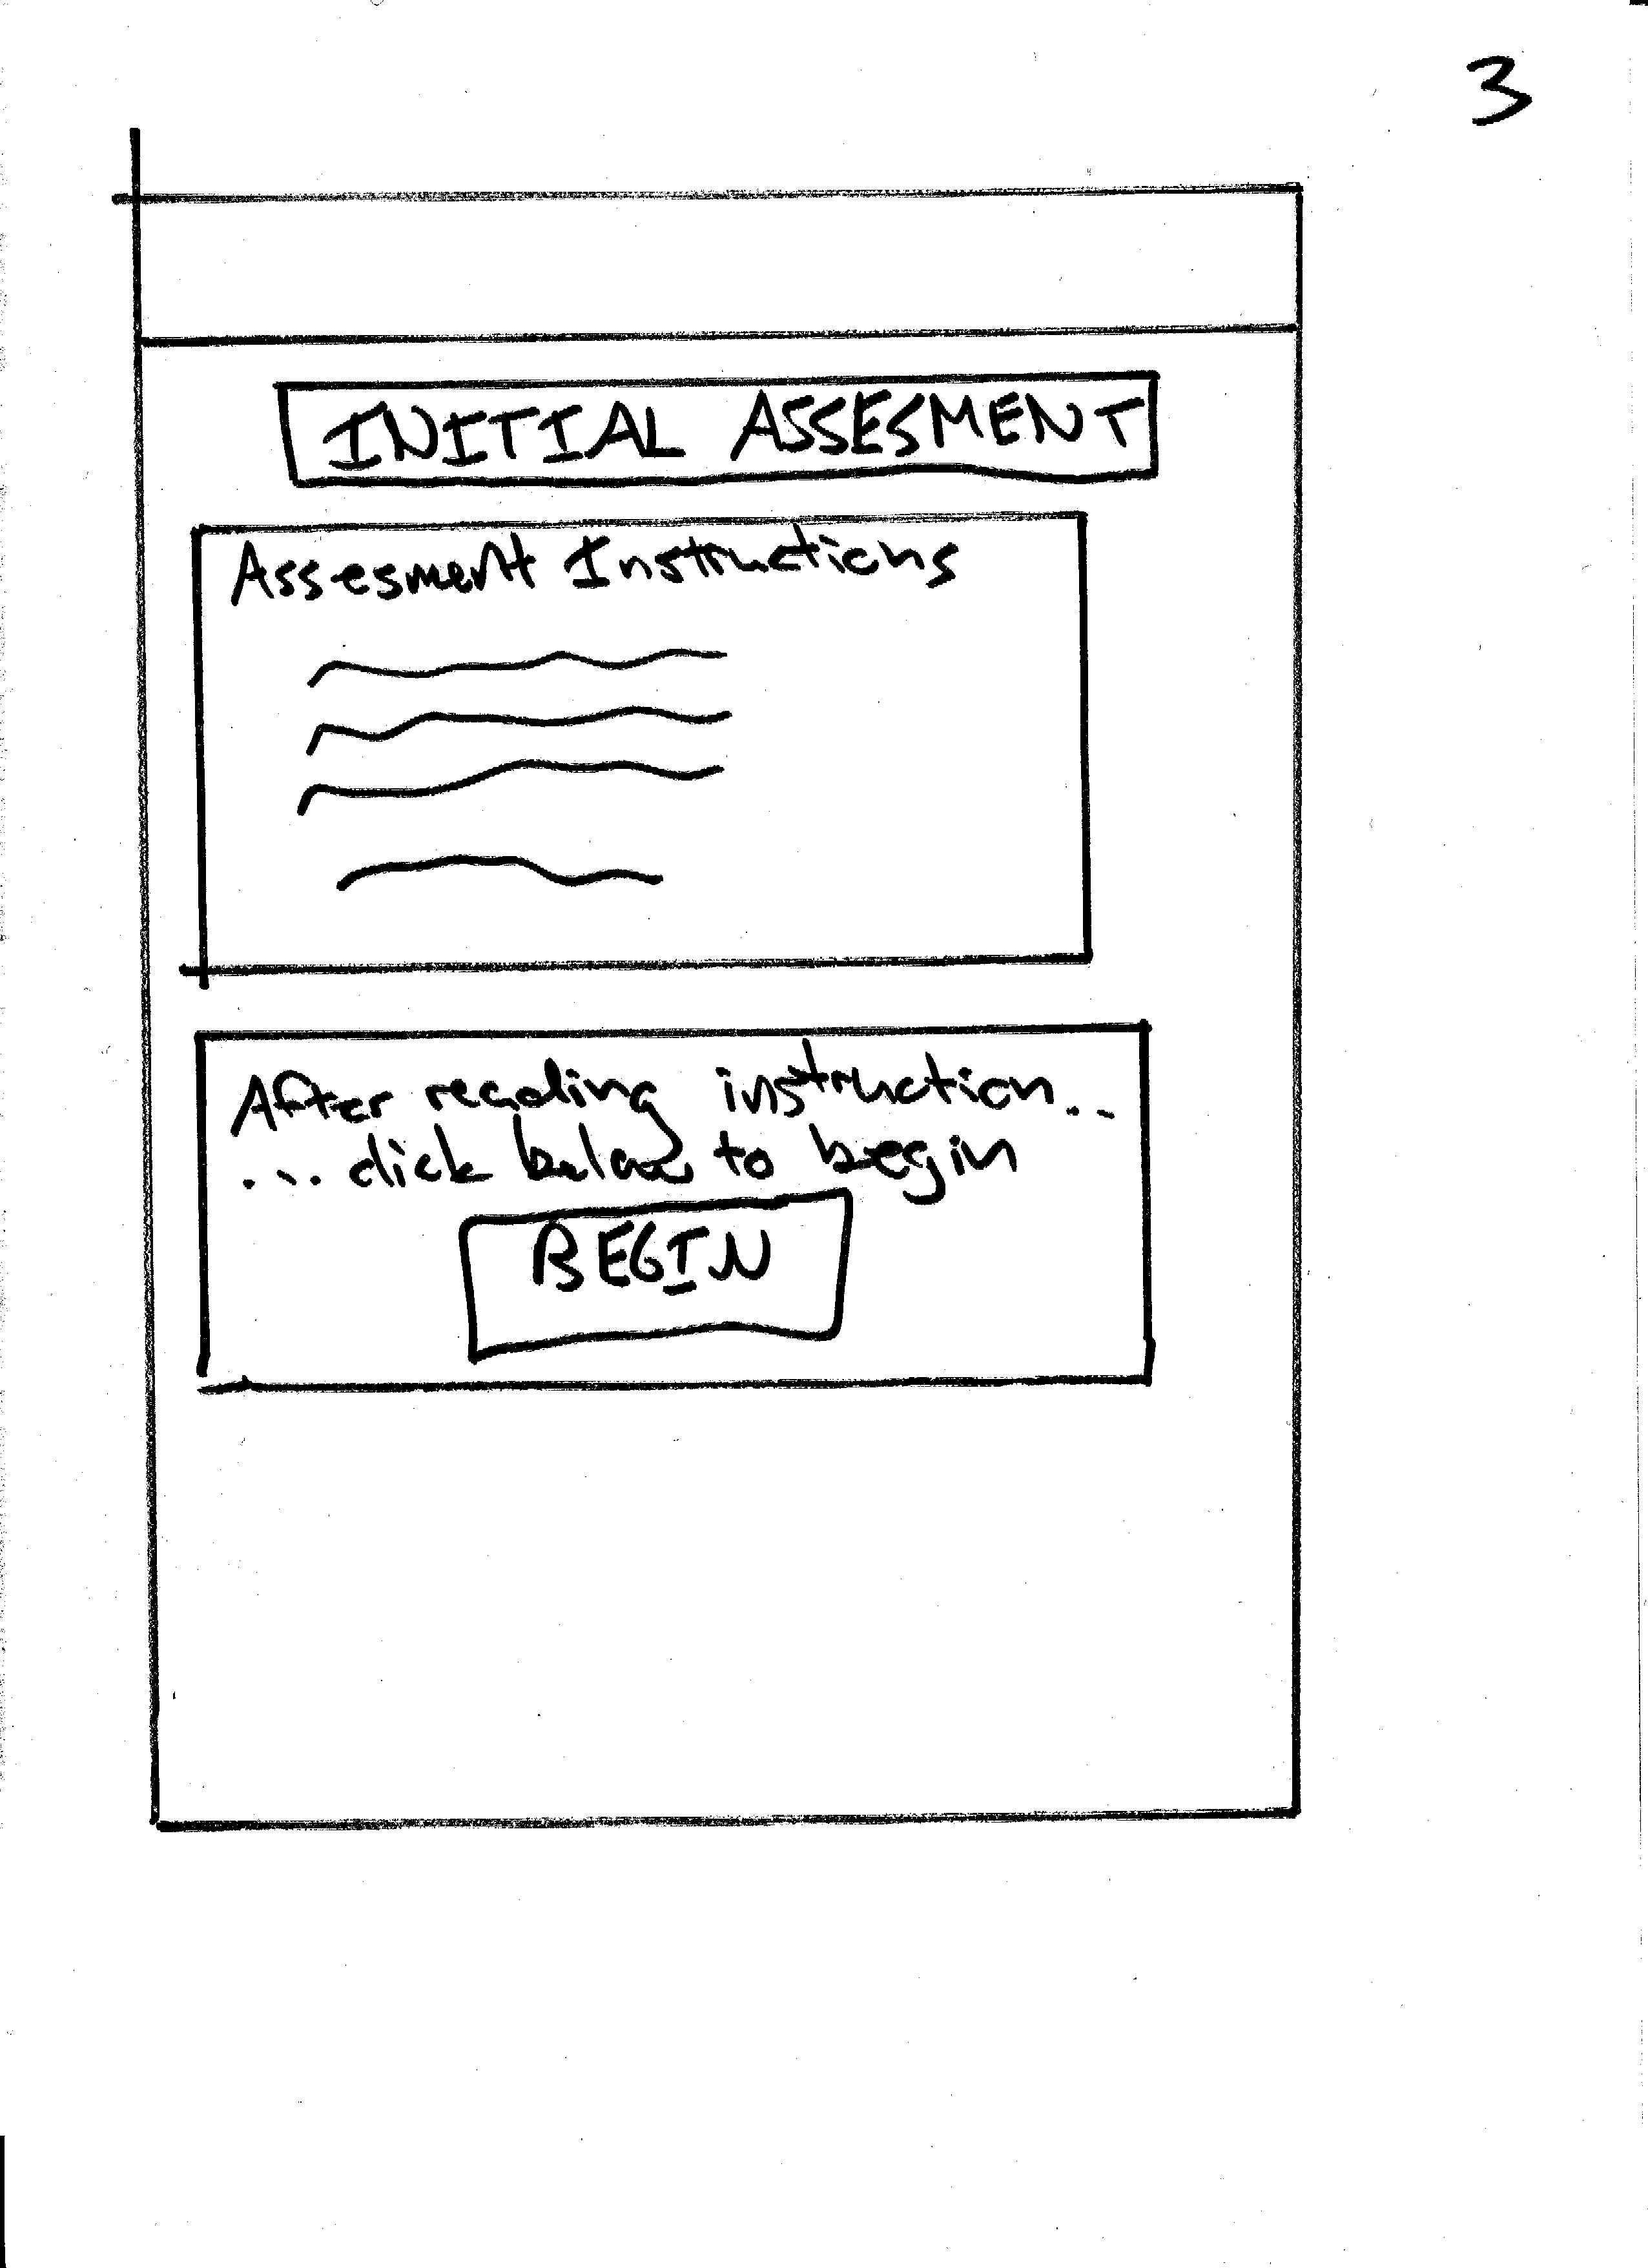 3
INITIAL ASSESMENT
Assesment Instructions
After reading instruction...
... click below to begin
BEGIN